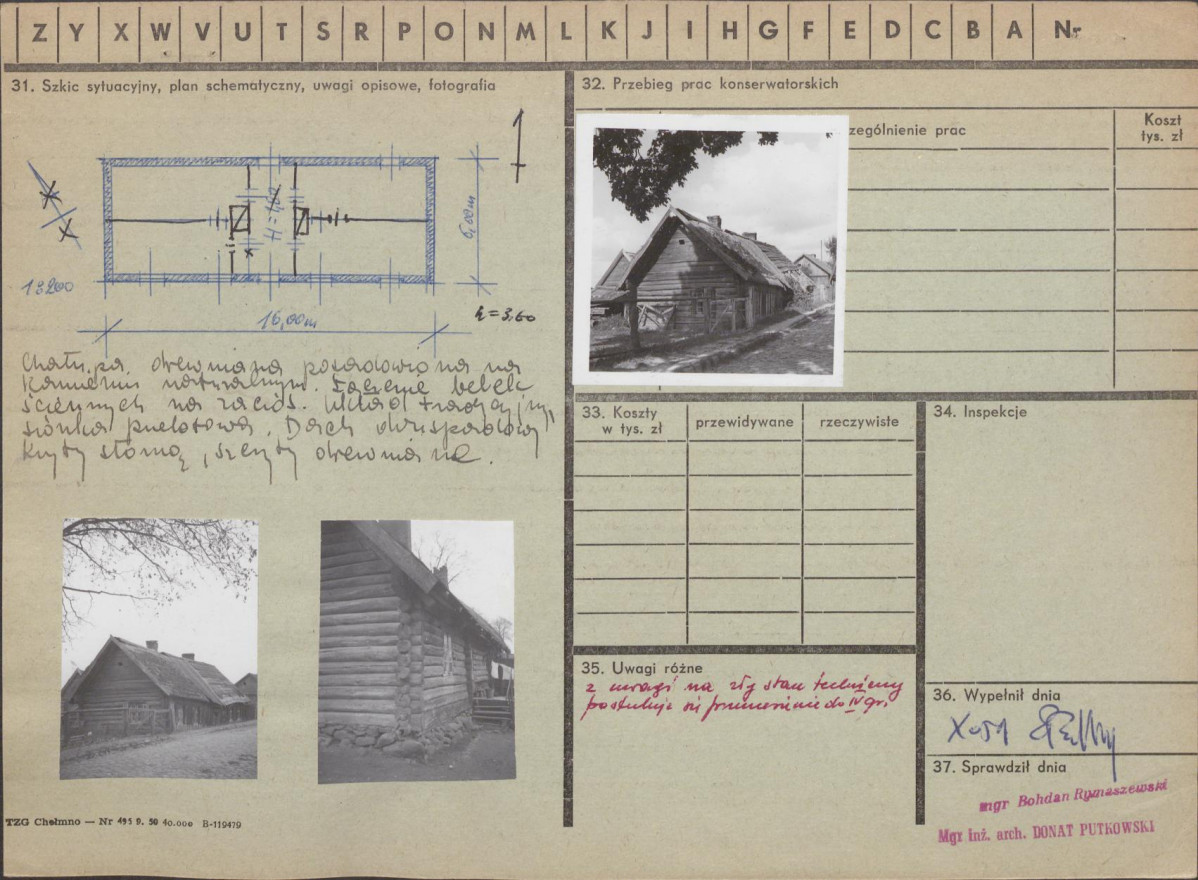 Z Y X W V U T S R P O N M L K J I H G F E D C B A Nr
31. Szkic sytuacyjny, plan schematyczny, uwagi opisowe, fotografia
6,00m
16,00m
h=3,60
Chałupa drewniana posadowiona na
kamieniu naturalnym. Łączenie belek
ściennych na zacios. Układ tradycyjny,
sionka przelotowa. Dach dwuspadowy
kryty słomą, szczyty drewniane.
TZG Chełmno — Nr 495 9. 50 40.000 B-119479
32. Przebieg prac konserwatorskich
zególnienie prac
Koszt
tys. zł
33. Koszty
w tys. zł
przewidywane
rzeczywiste
34. Inspekcje
35. Uwagi różne
z uwagi na zły stan techniczny
postuluje się przeniesienie do IV gr.
36. Wypełnił dnia
37. Sprawdził dnia
mgr Bohdan Rymaszewski
Mgr inż. arch. DONAT PUTKOWSKI